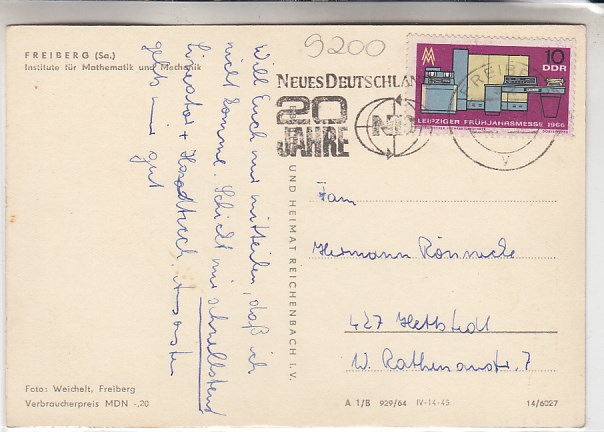 FREIBERG (Sa.)
Institute für Mathematik und Mechanik
9200
10
DDR
LEIPZIGER FRÜHJAHRSMESSE 1966
FREIBERG
NEUES DEUTSCHLAND
20
JAHRE
ND
y
Will Euch nur mitteilen, daß ich
nicht komme. Schickt mir schnellstens
+
geht mir gut
UND HEIMAT REICHENBACH I. V.
Fam.
Hermann Rönnecke
427 Hettstedt
W. Rathenaustr. 7
Foto: Weichelt, Freiberg
Verbraucherpreis MDN -,20
A 1/B 929/64 IV-14-45 14/6027